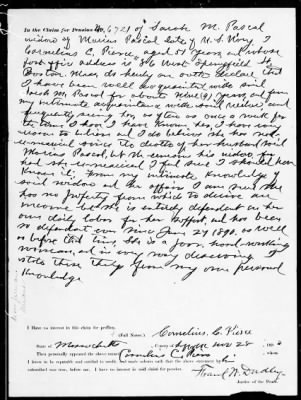 In the Claim for Pension No 6721 of Sarah M. Pascal
widow of Marius Pascal late of U. S. Navy I
Cornelius C. Pierce, aged 51 years and whose
post office address is 86 West Springfield St
Boston Mass do hereby on oath declare that
I have been well acquainted with said
Sarah M. Pascal for about nine (9) years and from
my intimate acquaintance with said widow, and
frequently seeing her as often as once a week for
the time I have known her, I have every
reason to believe and I do believe she has not
remarried since the death of her husband said
Marius Pascal, but she remains his widow, for
had she remarried I feel sure I should have
known it; from my intimate knowledge of
said widow and her affairs I am sure she
has no property from which to derive an
income, but she is entirely dependent on her
own daily labor for her support, and has been
so dependent ever since June 27 1890, as well
as before that time, She is a poor, hard working
woman, and in every way deserving. I
state these things from my own personal
knowledge
I have no interest in this claim for pension.
(Full Name.) Cornelius C. Pierce
State of Massachusetts County of Nov 28
Then personally appeared the above named Cornelius C. Pierce
I know to be reputable and entitled to credit, and made solemn oath that the above statement by
subscribed was true, before me. I have no interest in said claim for pension.
Frank W. Dudley
Justice of the Peace.